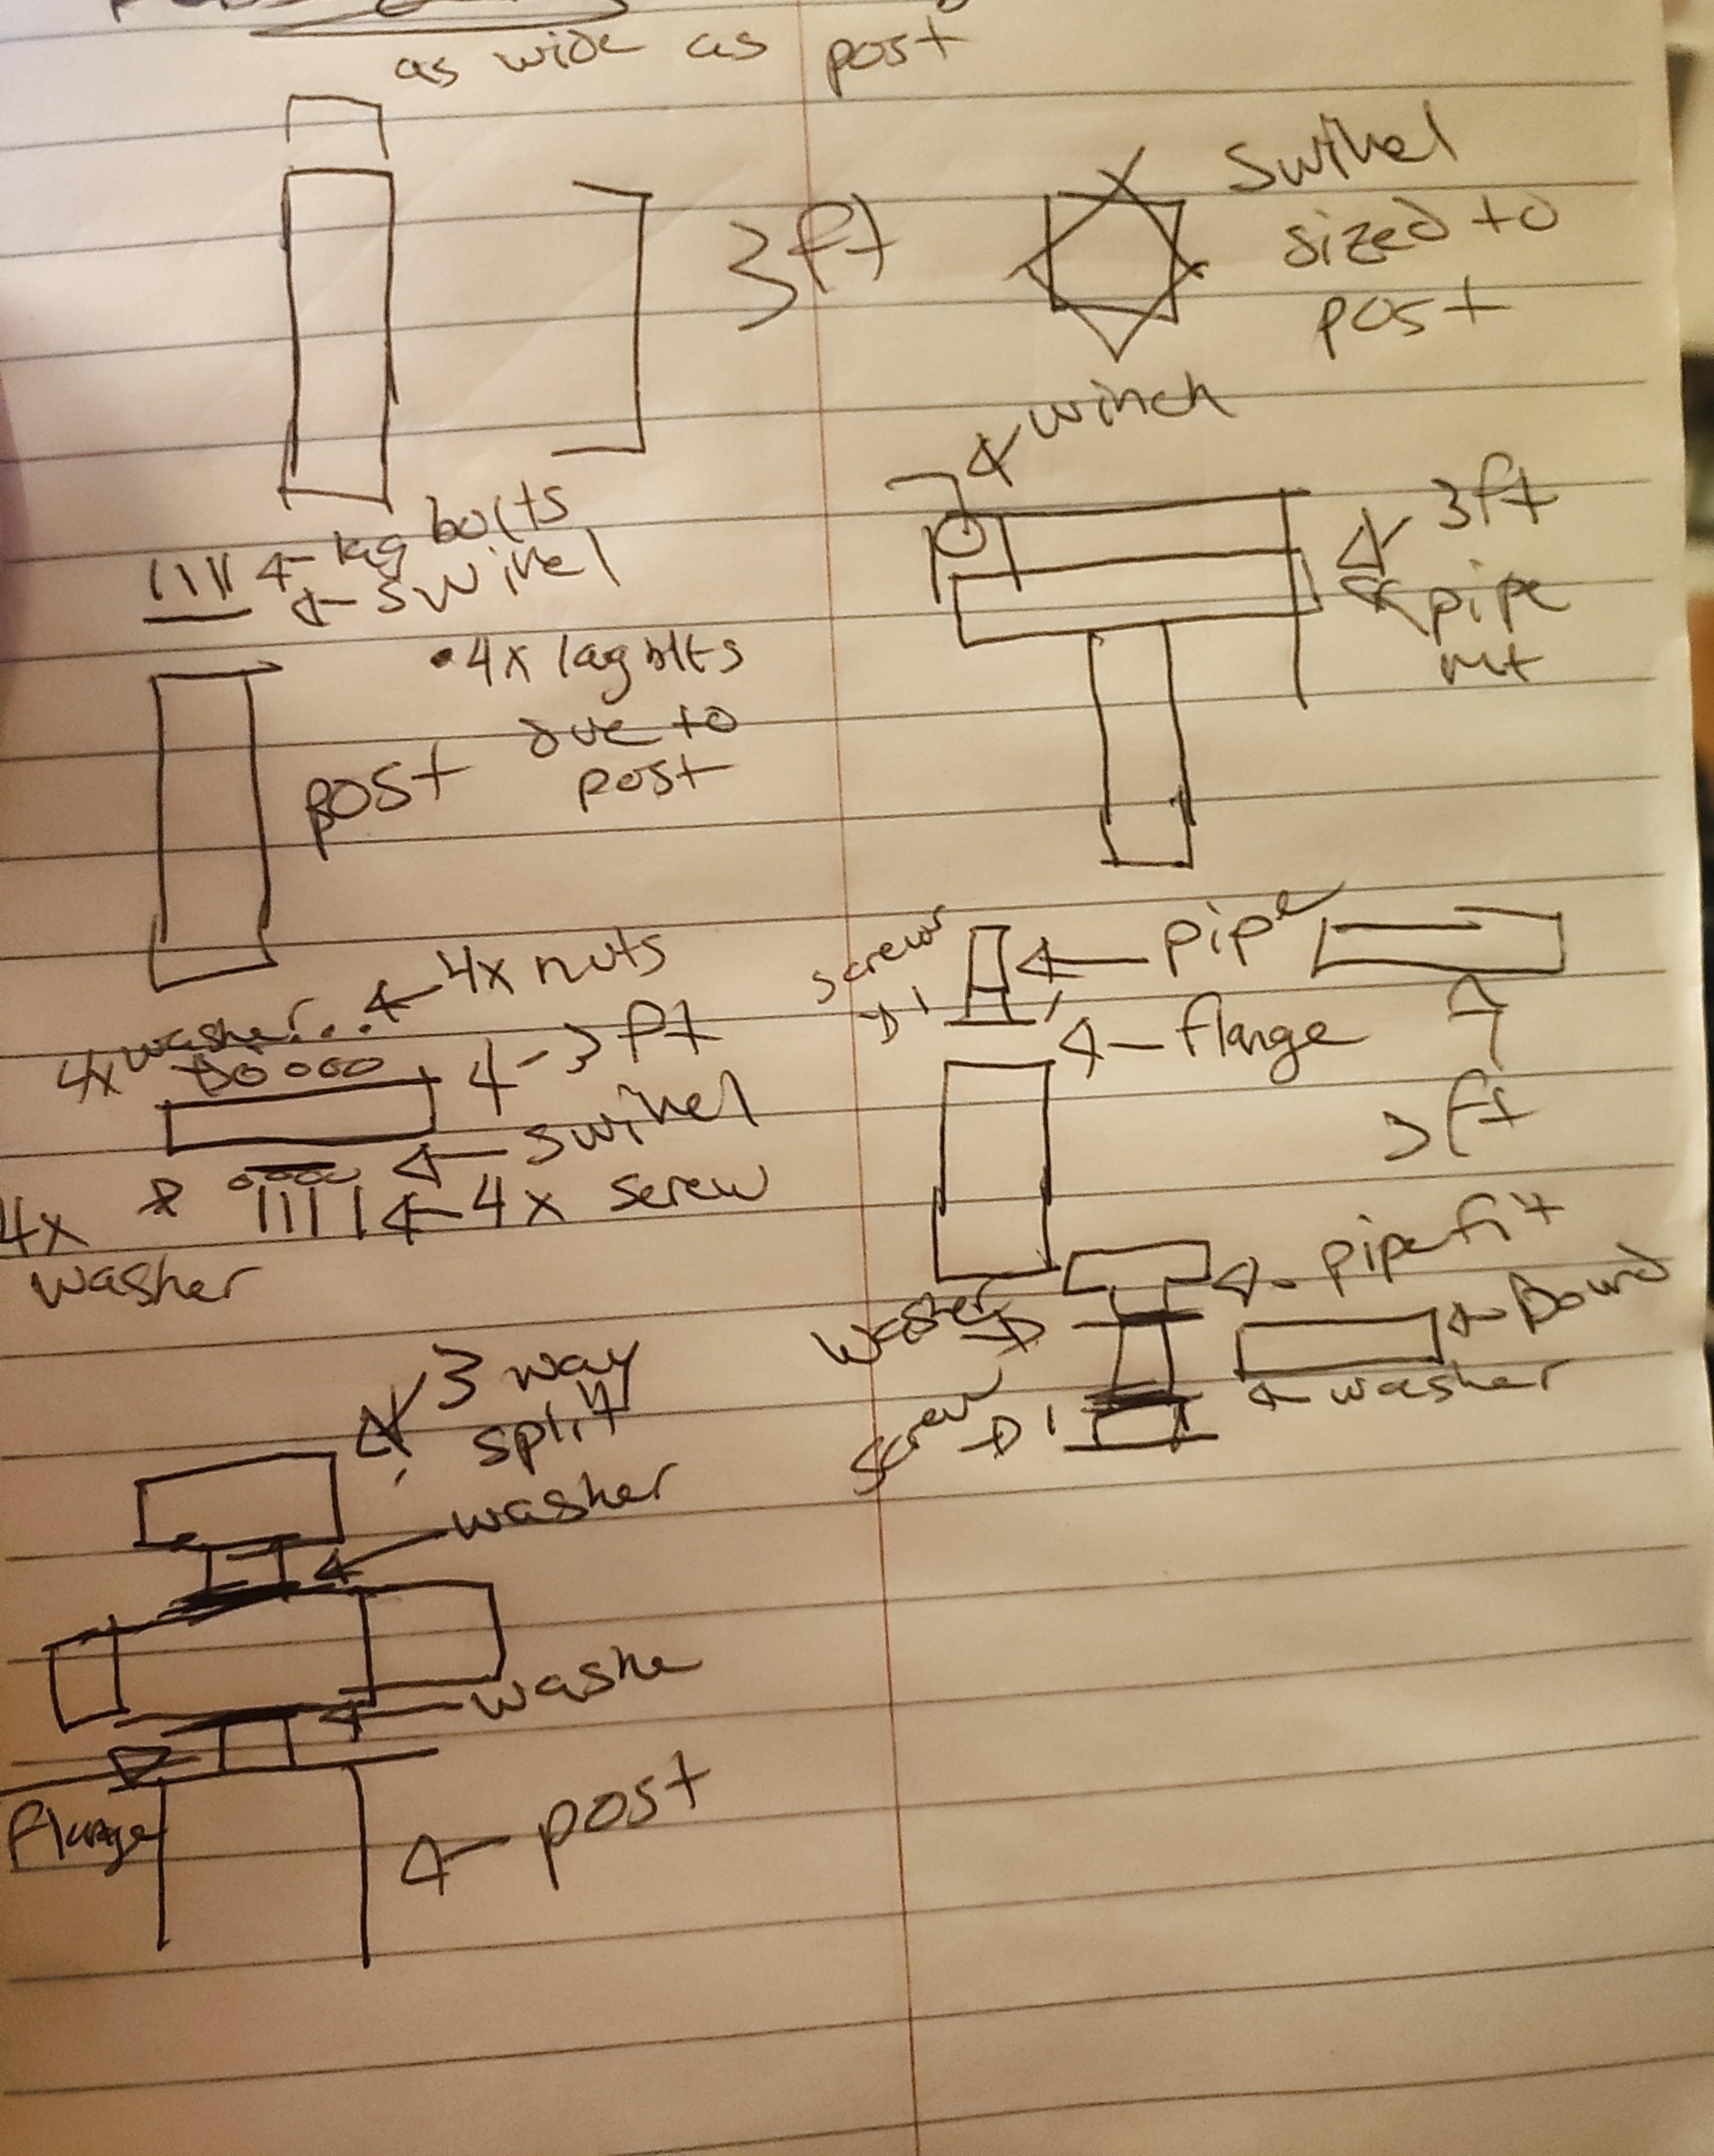 as wide as post
3ft
Swivel
sized to
post
winch
3ft
pipe
lag bolts
swivel
• 4x lag blts
due to
post
post
4x nuts
4x washer
3 ft
swivel
4x screw
4x
washer
screw
pipe
flange
3 ft
pipe fit
Board
washer
washer
screw
3 way
split
washer
washe
flange
post